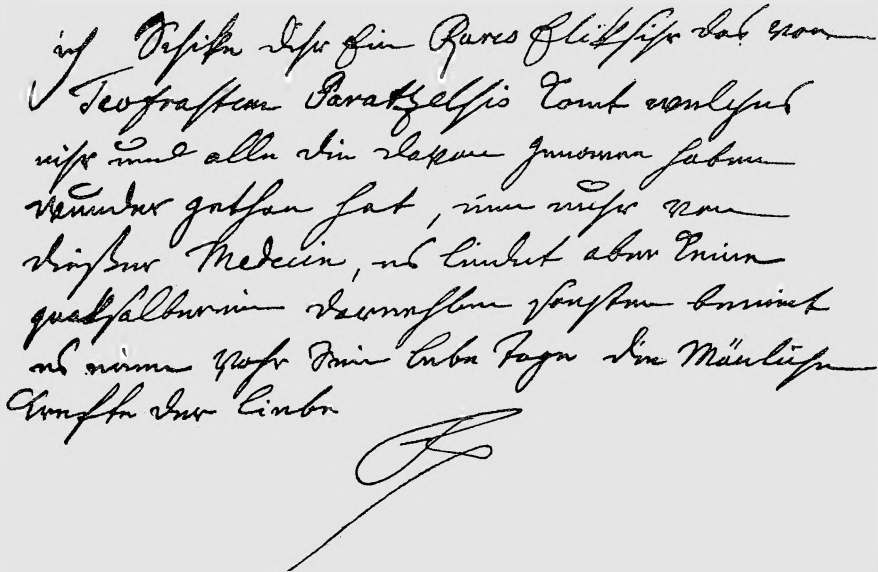 ich Schike dihr ein Rares Eliksihr das von
Teofrastem Paratzelsis komt welches
mihr und alle die davon genomen haben
wunder gethan hat, nim nuhr von
dießer Medecin, es leidet aber keine
quaksalbereien darnehben sonsten benimt
es einen vohr Sein lebe tage die Mänliche
krefte der liebe